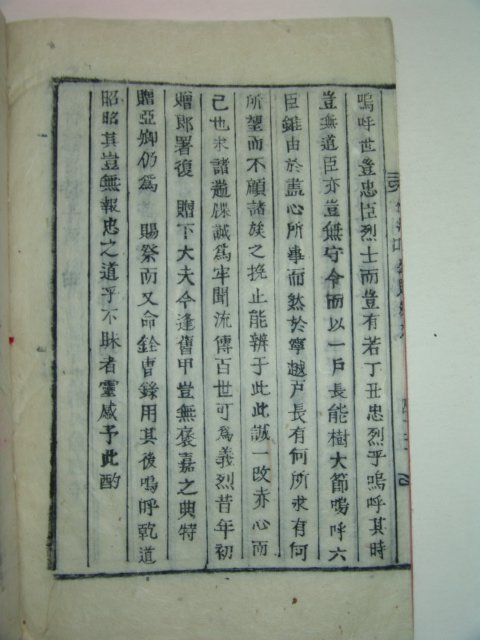 嗚呼世豈忠臣烈士而豈有若丁丑忠烈乎嗚呼其時
豈無道臣亦豈無守令而以一戶長能樹大節嗚呼六
臣錐由於盡心所事而然於寧越戶長有何所求有何
所望而不顧諸族之挽止能辨于此此誠一改亦心而
已也求諸邈牒誠爲牢聞流傳百世可爲義烈昔年初
贈郎署復 贈下大夫今逢舊甲豈無褒嘉之典特
贈亞卿仍爲 賜祭而又命銓曹錄用其後嗚呼乾道
昭昭其豈無報忠之道乎不昧者靈感予此酌